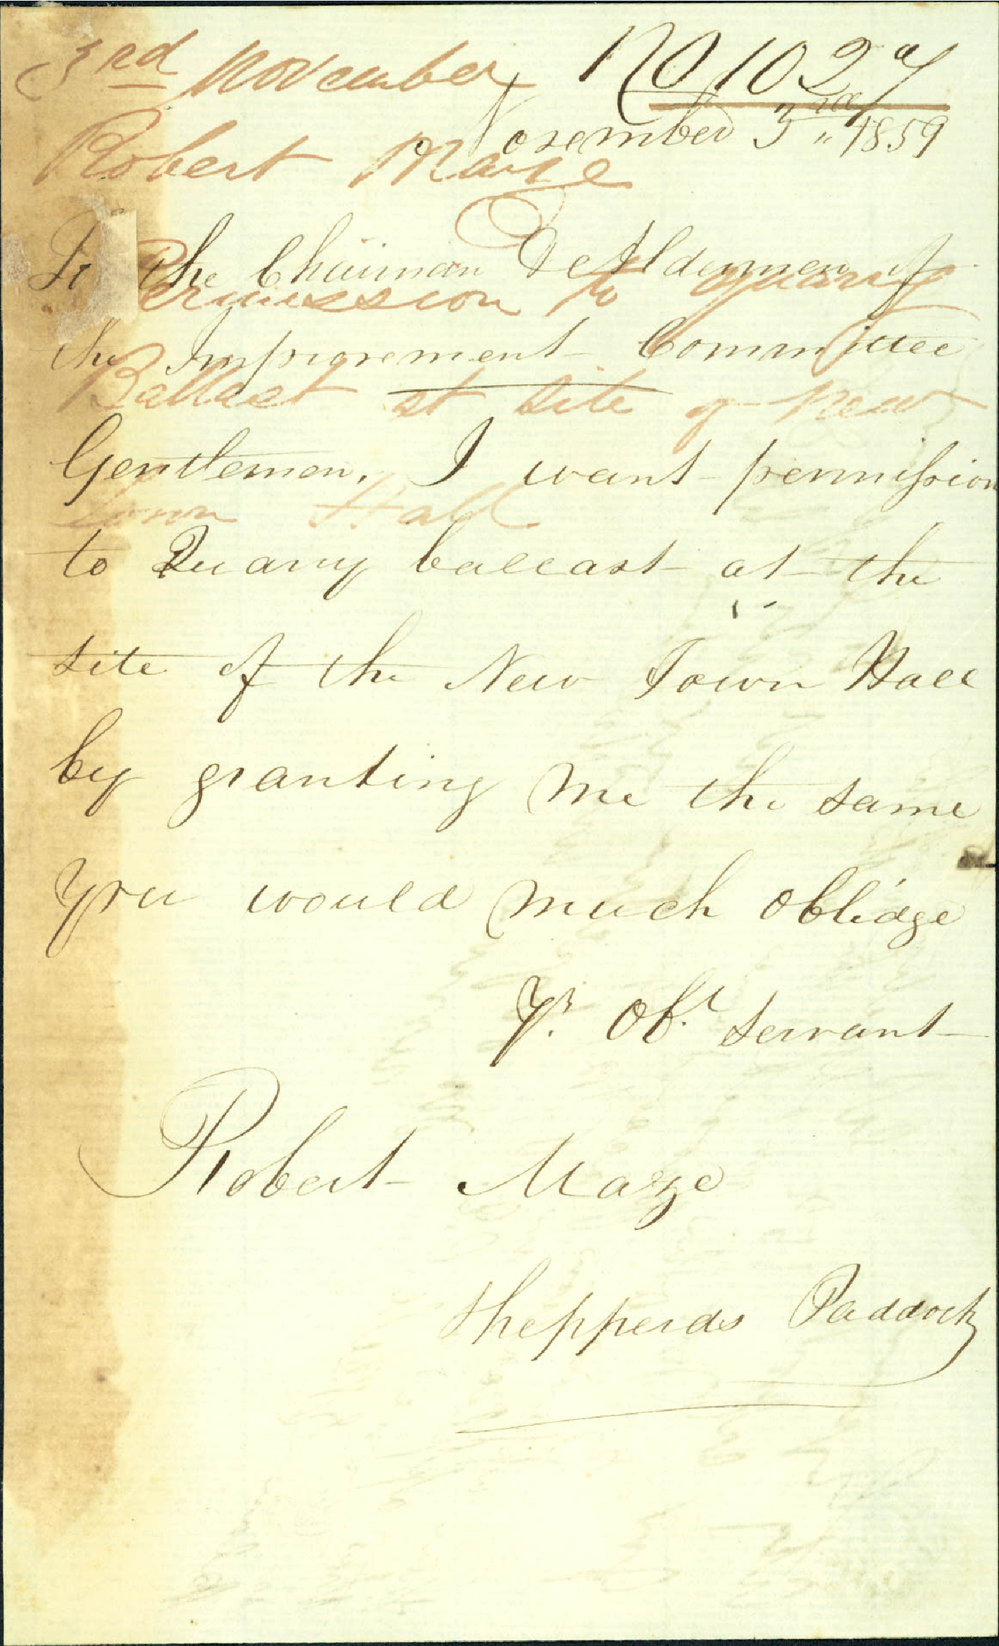 3rd November
No 1027
Robert Maze
Permission to quarry
Ballast at site of New
Town Hall
November 3rd 1859
To the Chairman & Aldermen of
the Improvement Committee
Gentlemen. I want permission
to Quarry ballast at the
site of the New Town Hall
by granting me the same
you would much oblidge
Yr. Obt. servant
Robert Maze
Shepperds Paddock